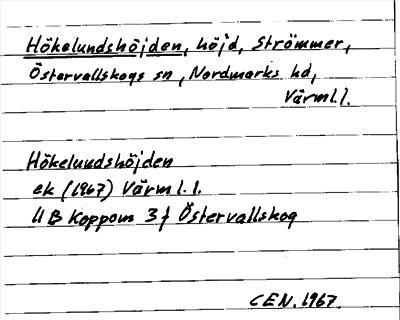 Hökelundshöjden, höjd, Strömmer,
Östervallskogs sn, Nordmarks hd,
Värml.l.
Hökelundshöjden
ek (1967) Värml.l.
11B Koppom 3f Östervallskog
CEN. 1967.